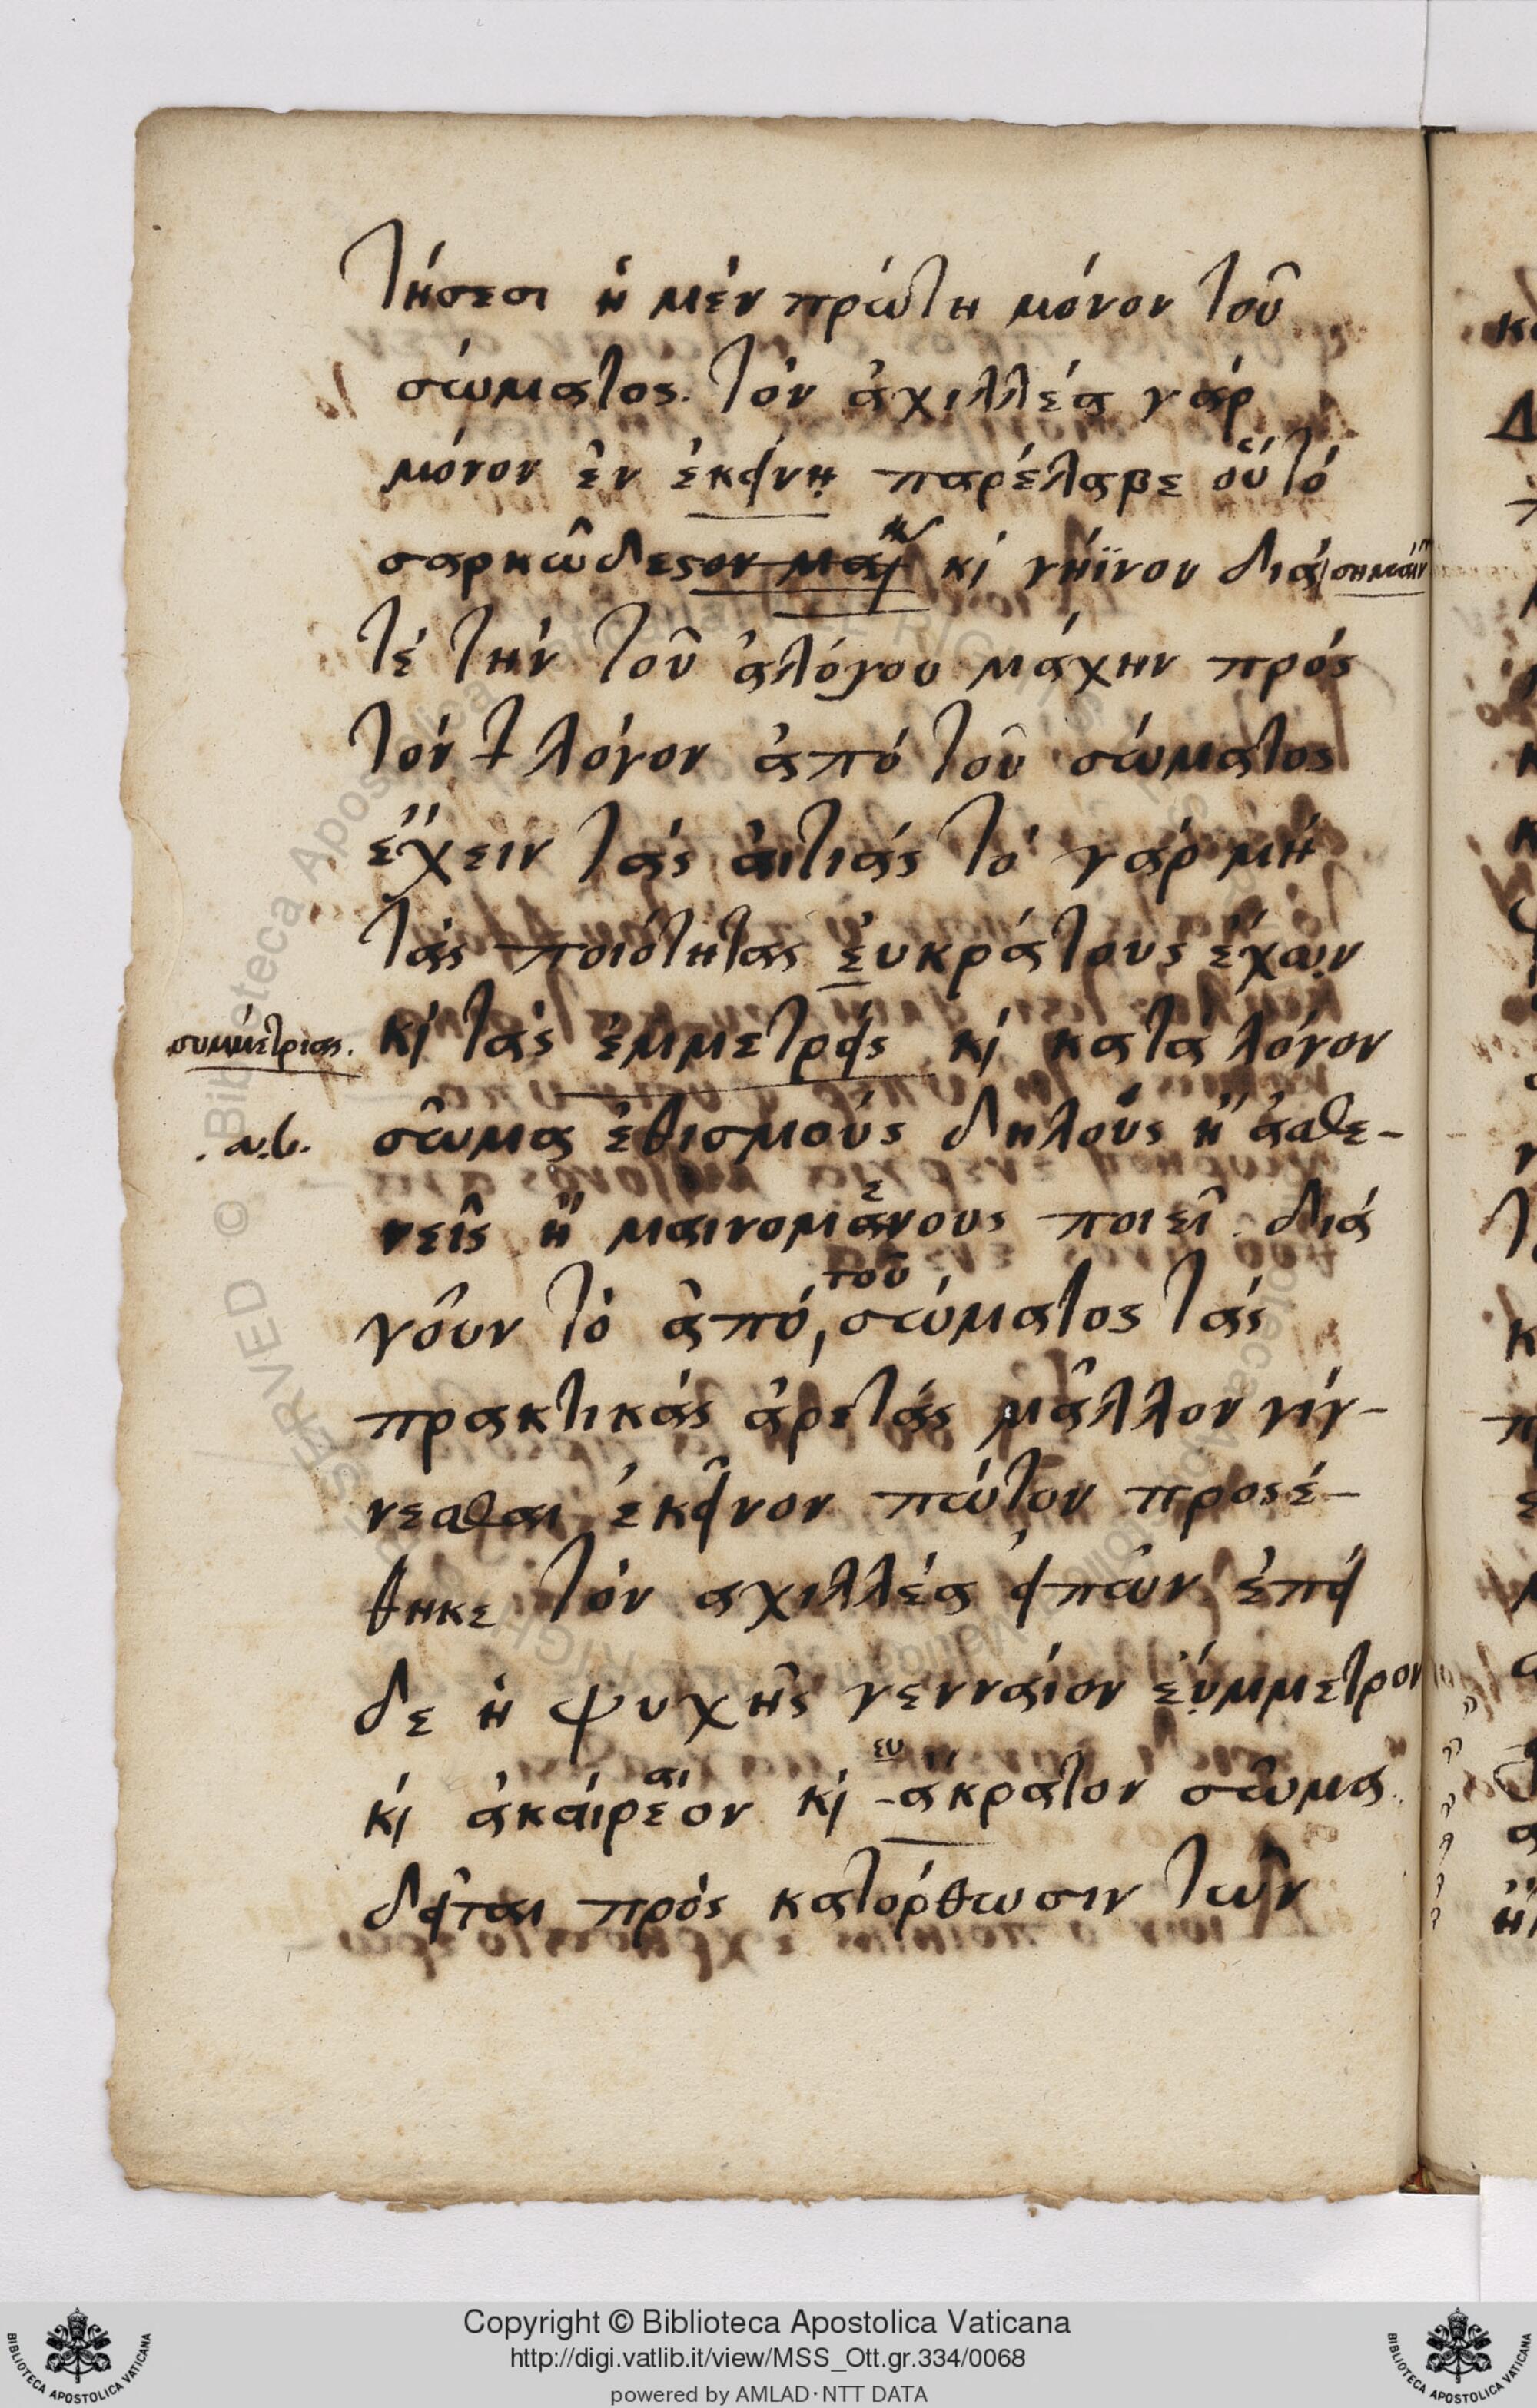 τήσεσι ἡ μὲν πρώτη μόνον τοῦ
σώματος. τὸν ἀχιλλέα γάρ
μόνον ἐν ἐκείνῃ παρέλαβε οὗ τό
σαρκῶδες καὶ γήϊνον διὰ σημαίν
τέ τὴν τοῦ ἀλόγου μάχην πρός
τόν λόγον ἀπό τοῦ σώματος
ἔχειν τάς ἀιτιάς τό γάρ μή
τάς ποιότητας ἐυκράτους ἔχων
συμμετρίας. καὶ τάς ἐμμετρείς καὶ κατὰ λόγον
σῶμα ἐθισμούς δηλούς ἤ ἀσθε-
νεῖς ἤ μαινομένους ποιεῖ. διά
γοῦν τὸ ἀπό τοῦ σώματος τάς
πρακτικάς ἀρετάς μᾶλλον γίγ-
νεσθαι ἐκεῖνον πώτον προςέ-
θηκε τόν αχιλλέα εἰπών ἐπεί
δε ἡ ψυχῆς γενναίον σύμμετρον
καὶ ἀκαίρεον καὶ ἄκρατον σῶμα.
δεῖται πρός κατόρθωσιν τῶν
Copyright © Biblioteca Apostolica Vaticana
http://digi.vatlib.it/view/MSS_Ott.gr.334/0068
powered by AMLAD·NTT DATA
BIBLIOTECA APOSTOLICA VATICANA
BIBLIOTECA APOSTOLICA VATICANA